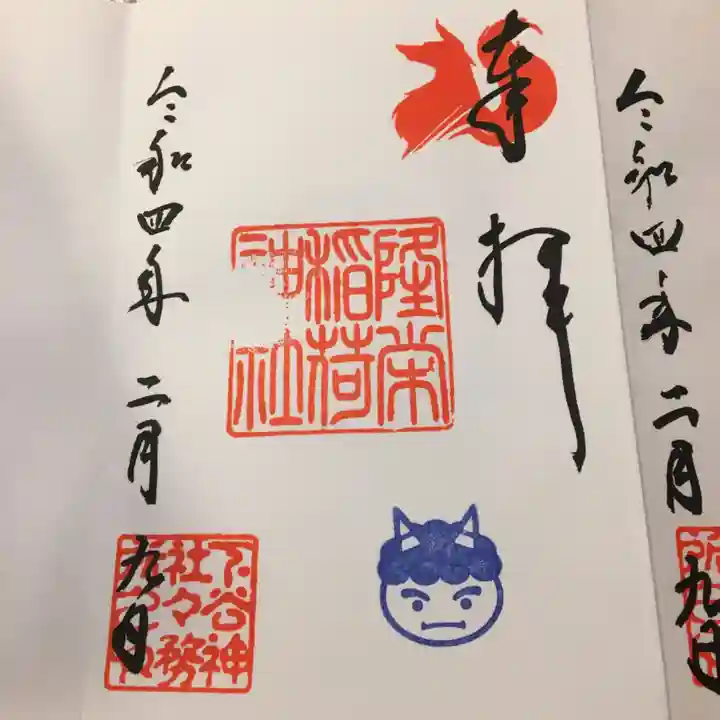 奉拝
隆栄稲荷神社
令和四年二月九日
下谷神社々務所之印
令和四年二月九日